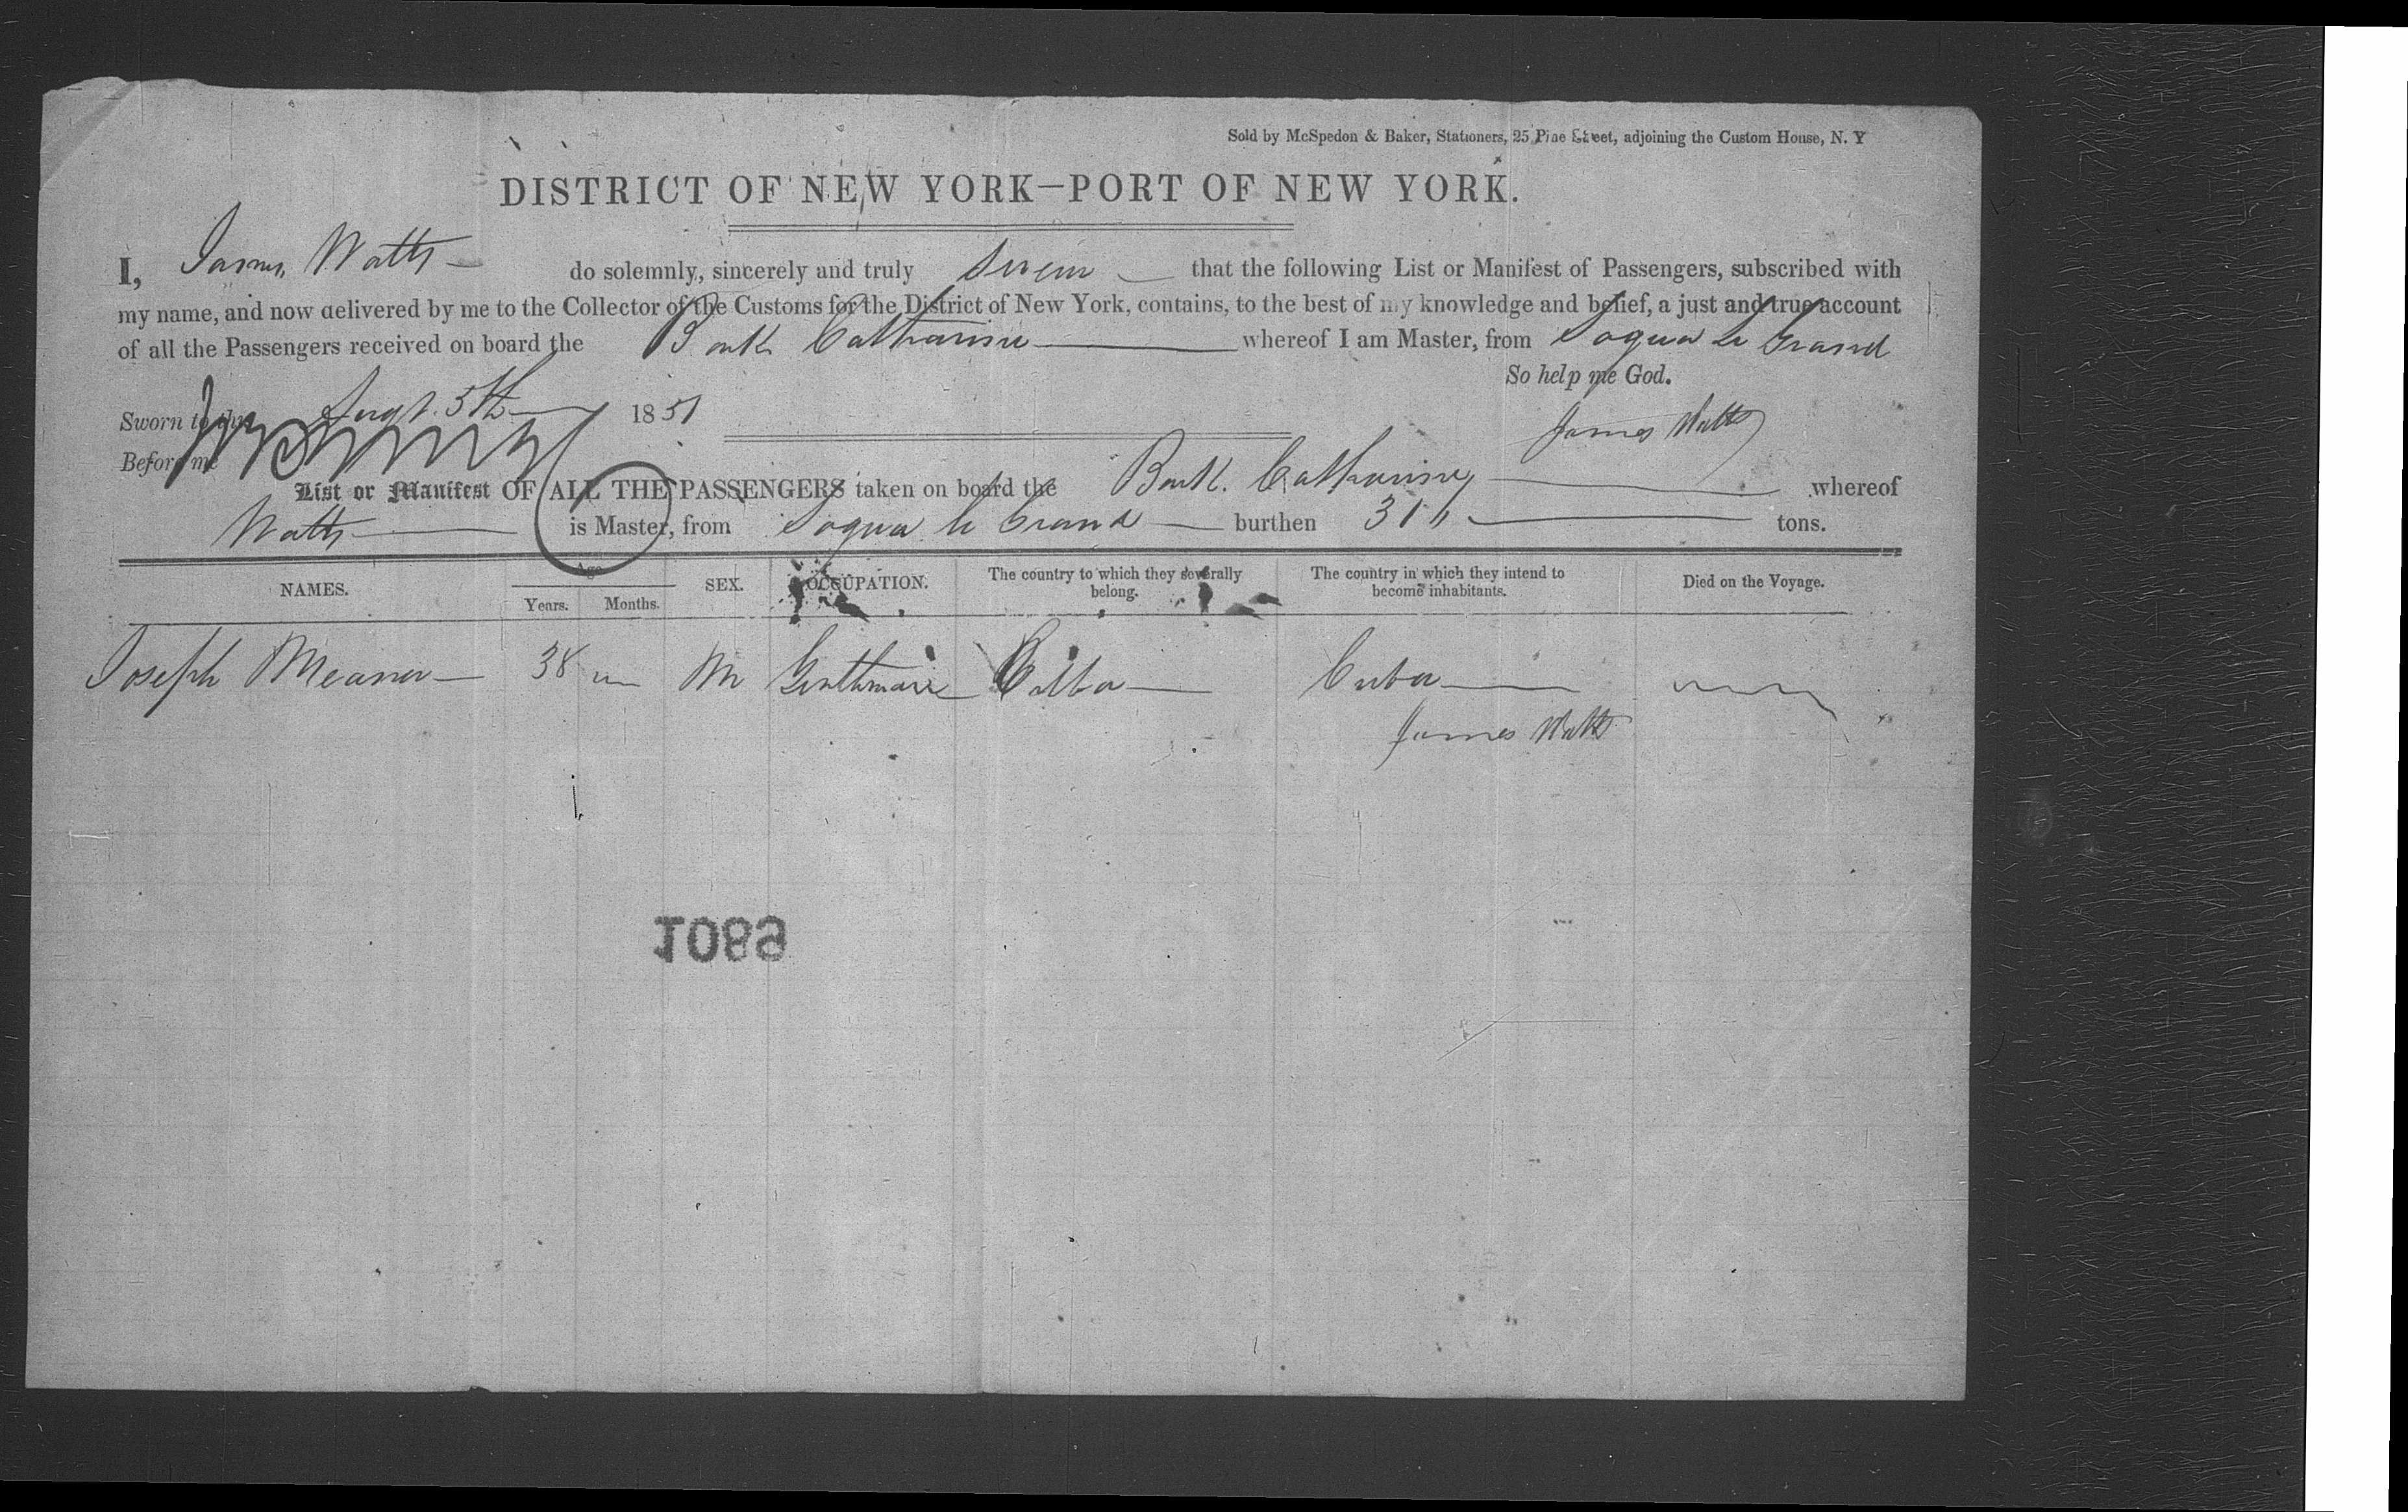 Sold by McSpedon & Baker, Stationers, 25 Pine Street, adjoining the Custom House, N. Y
DISTRICT OF NEW YORK—PORT OF NEW YORK.
I, James Watts do solemnly, sincerely and truly swear that the following List or Manifest of Passengers, subscribed with
my name, and now delivered by me to the Collector of the Customs for the District of New York, contains, to the best of my knowledge and belief, a just and true account
of all the Passengers received on board the Bark Catharine whereof I am Master, from Sagua le Grand
So help me God.
Sworn to this Augt. 5th 1851
James Watts
Before me
List or Manifest OF ALL THE PASSENGERS taken on board the Bark Catharine whereof
Watts is Master, from Sagua le Grand burthen 311 tons.
NAMES. Age Years. Months. SEX. OCCUPATION. The country to which they severally belong. The country in which they intend to become inhabitants. Died on the Voyage.
Joseph 38 M Gentleman Cuba Cuba
James Watts
1089